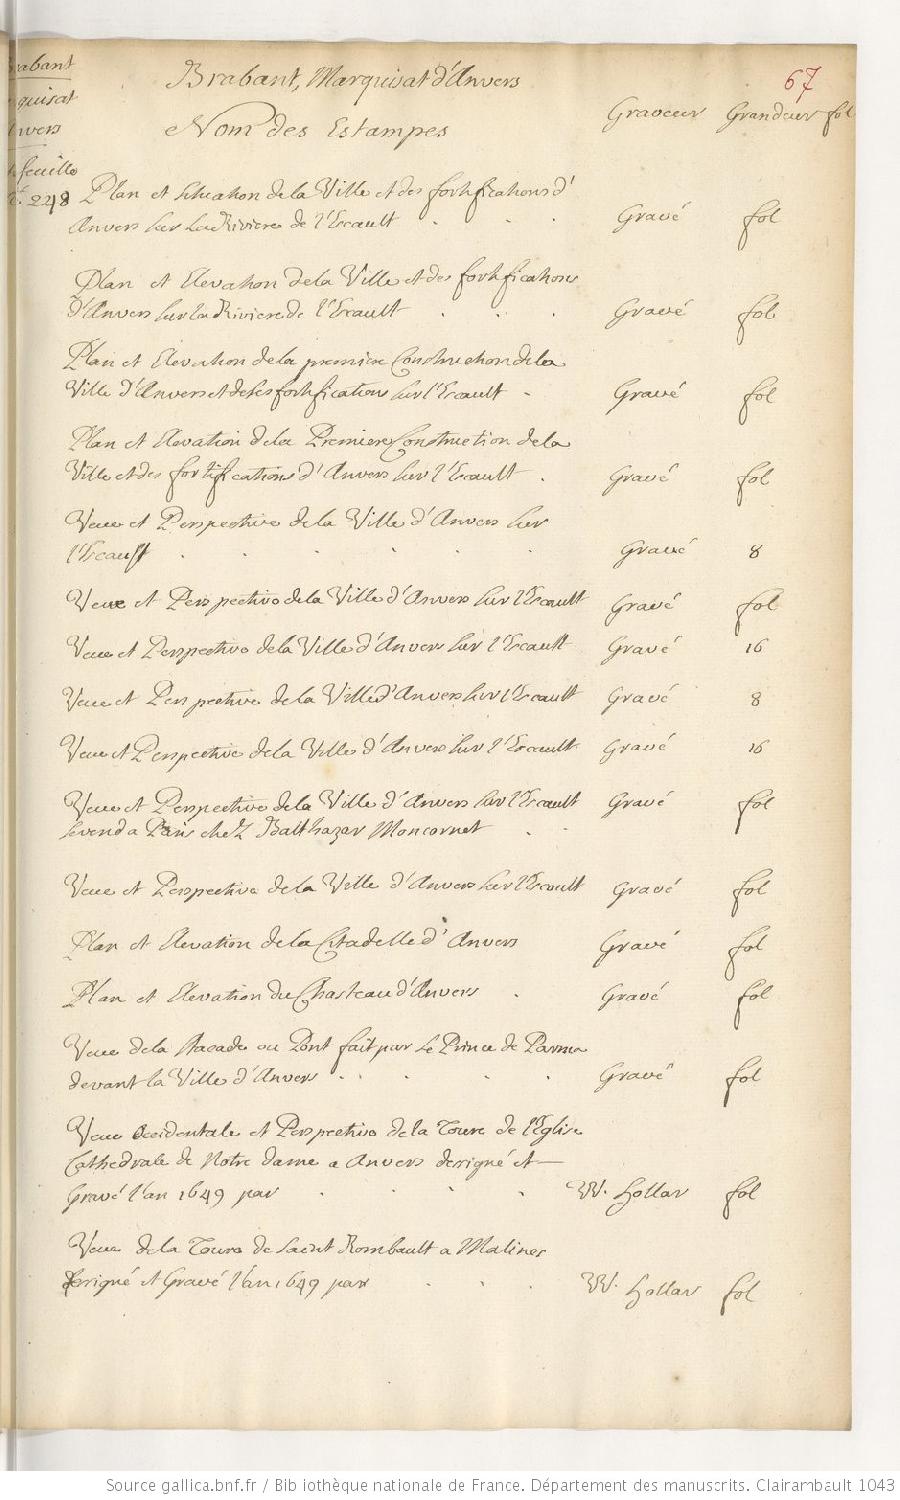 Brabant, Marquisat d'Anvers
67
Nom des Estampes
Graveur Grandeur fol
rabant
quisat
nvers
feuille
248
Plan et situation de la Ville et des fortifications d'
Anvers sur la Riviere de l'Escault . . . Gravé fol
Plan et Elevation de la Ville et des fortifications
d'Anvers sur la Riviere de l'Escault . . . Gravé fol
Plan et Elevation de la premiere Construction de la
Ville d'Anvers et de ses fortifications sur l'Escault . Gravé fol
Plan et Elevation de la Premiere Construction de la
Ville et des fortifications d'Anvers sur l'Escault . Gravé fol
Veue et Perspective de la Ville d'Anvers sur
l'Escault . . . . . . Gravé 8
Veue et Perspective de la Ville d'Anvers sur l'Escault Gravé fol
Veue et Perspective de la Ville d'Anvers sur l'Escault Gravé 16
Veue et Perspective de la Ville d'Anvers sur l'Escault Gravé 8
Veue et Perspective de la Ville d'Anvers sur l'Escault Gravé 16
Veue et Perspective de la Ville d'Anvers sur l'Escault Gravé fol
se vend a Paris chez Balthazar Moncornet . .
Veue et Perspective de la Ville d'Anvers sur l'Escault Gravé fol
Plan et Elevation de la Citadelle d'Anvers Gravé fol
Plan et Elevation du Chasteau d'Anvers . Gravé fol
Veue de la Stacade ou Pont fait par Le Prince de Parma
devant la Ville d'Anvers . . . . . Gravé fol
Veue Occidentale et Perspective de la Toure de l'Eglise
Cathedrale de Notre dame a Anvers dessigné et —
Gravé l'an 1649 par . . . . W. Hollar fol
Veue de la Toure de saint Rombault a Malines
dessigné et Gravé l'an 1649 par . . . W. Hollar fol
Source gallica.bnf.fr / Bibliothèque nationale de France. Département des manuscrits. Clairambault 1043